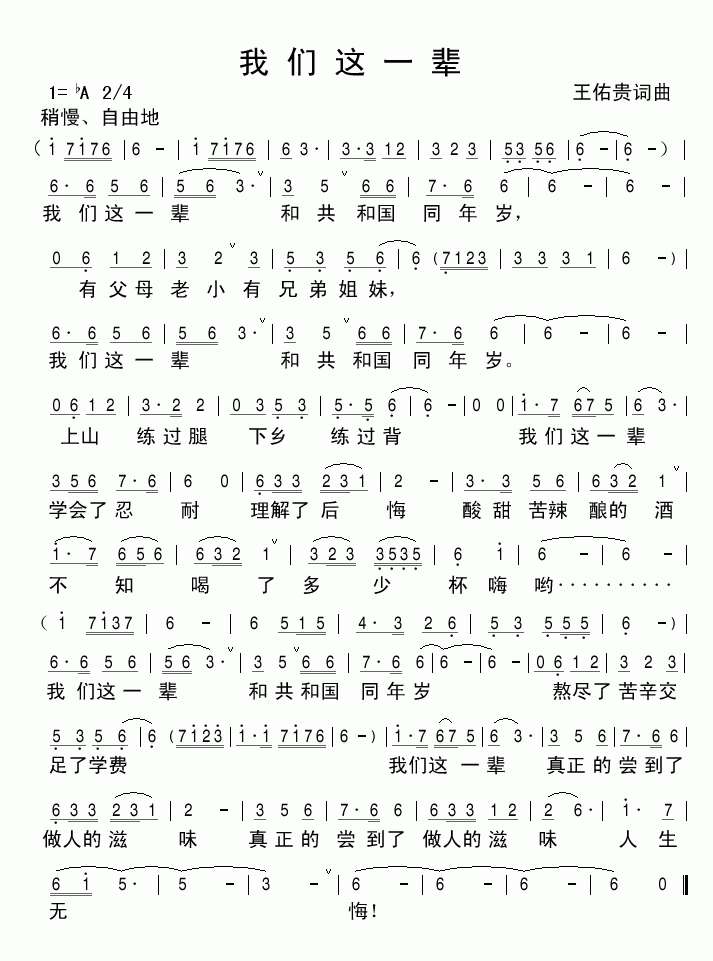 我们这一辈
1=♭A 2/4
王佑贵词曲
稍慢、自由地
(1 7176 | 6 - | 1 7176 | 6 3· | 3·3 12 | 3 2 3 | 53 56 | 6 - | 6 - ) |
6· 6 5 6 | 5 6 3·ˇ | 3 5ˇ 6 6 | 7· 6 6 | 6 - | 6 - |
我 们 这 一 辈 和 共 和国 同 年 岁,
0 6 1 2 | 3 2ˇ 3 | 5 3 5 6 | 6 (7123 | 3 3 3 1 | 6 -) |
有 父 母 老 小 有 兄 弟 姐 妹,
6· 6 5 6 | 5 6 3·ˇ | 3 5ˇ 6 6 | 7· 6 6 | 6 - | 6 - |
我 们 这 一 辈 和 共 和国 同 年 岁。
0 6 1 2 | 3· 2 2 | 0 3 5 3 | 5· 5 6 | 6 - | 0 0 | 1· 7 67 5 | 6 3· |
上山 练 过 腿 下乡 练 过 背 我 们 这 一 辈
3 5 6 7· 6 | 6 0 | 6 3 3 2 3 1 | 2 - | 3· 3 5 6 | 6 3 2 1ˇ |
学会了 忍 耐 理解了 后 悔 酸 甜 苦辣 酿的 酒
1· 7 | 6 5 6 | 6 3 2 1ˇ | 3 2 3 3535 | 6 1 | 6 - | 6 - |
不 知 喝 了 多 少 杯 嗨 哟··········
(1 7137 | 6 - | 6 5 1 5 | 4· 3 2 6 | 5 3 5 5 5 | 6 -) |
6· 6 5 6 | 5 6 3·ˇ | 3 5ˇ 6 6 | 7· 6 6 | 6 - | 0 6 1 2 | 3 2 3 |
我 们这 一 辈 和 共 和国 同 年 岁 熬尽了 苦辛交
5 3 5 6 | 6 (7123 | 1·1 7176 | 6 -) | 1·7 67 5 | 6 3· | 3 5 6 | 7· 6 6 |
足了学费 我们这 一辈 真正 的 尝到了
6 3 3 2 3 1 | 2 - | 3 5 6 | 7· 6 6 | 6 3 3 1 2 | 2 6· | 1· 7 |
做人的 滋 味 真正的 尝 到了 做人的 滋 味 人 生
6 1 5· | 5 - | 3 -ˇ | 6 - | 6 - | 6 - | 6 0 ‖
无 悔!